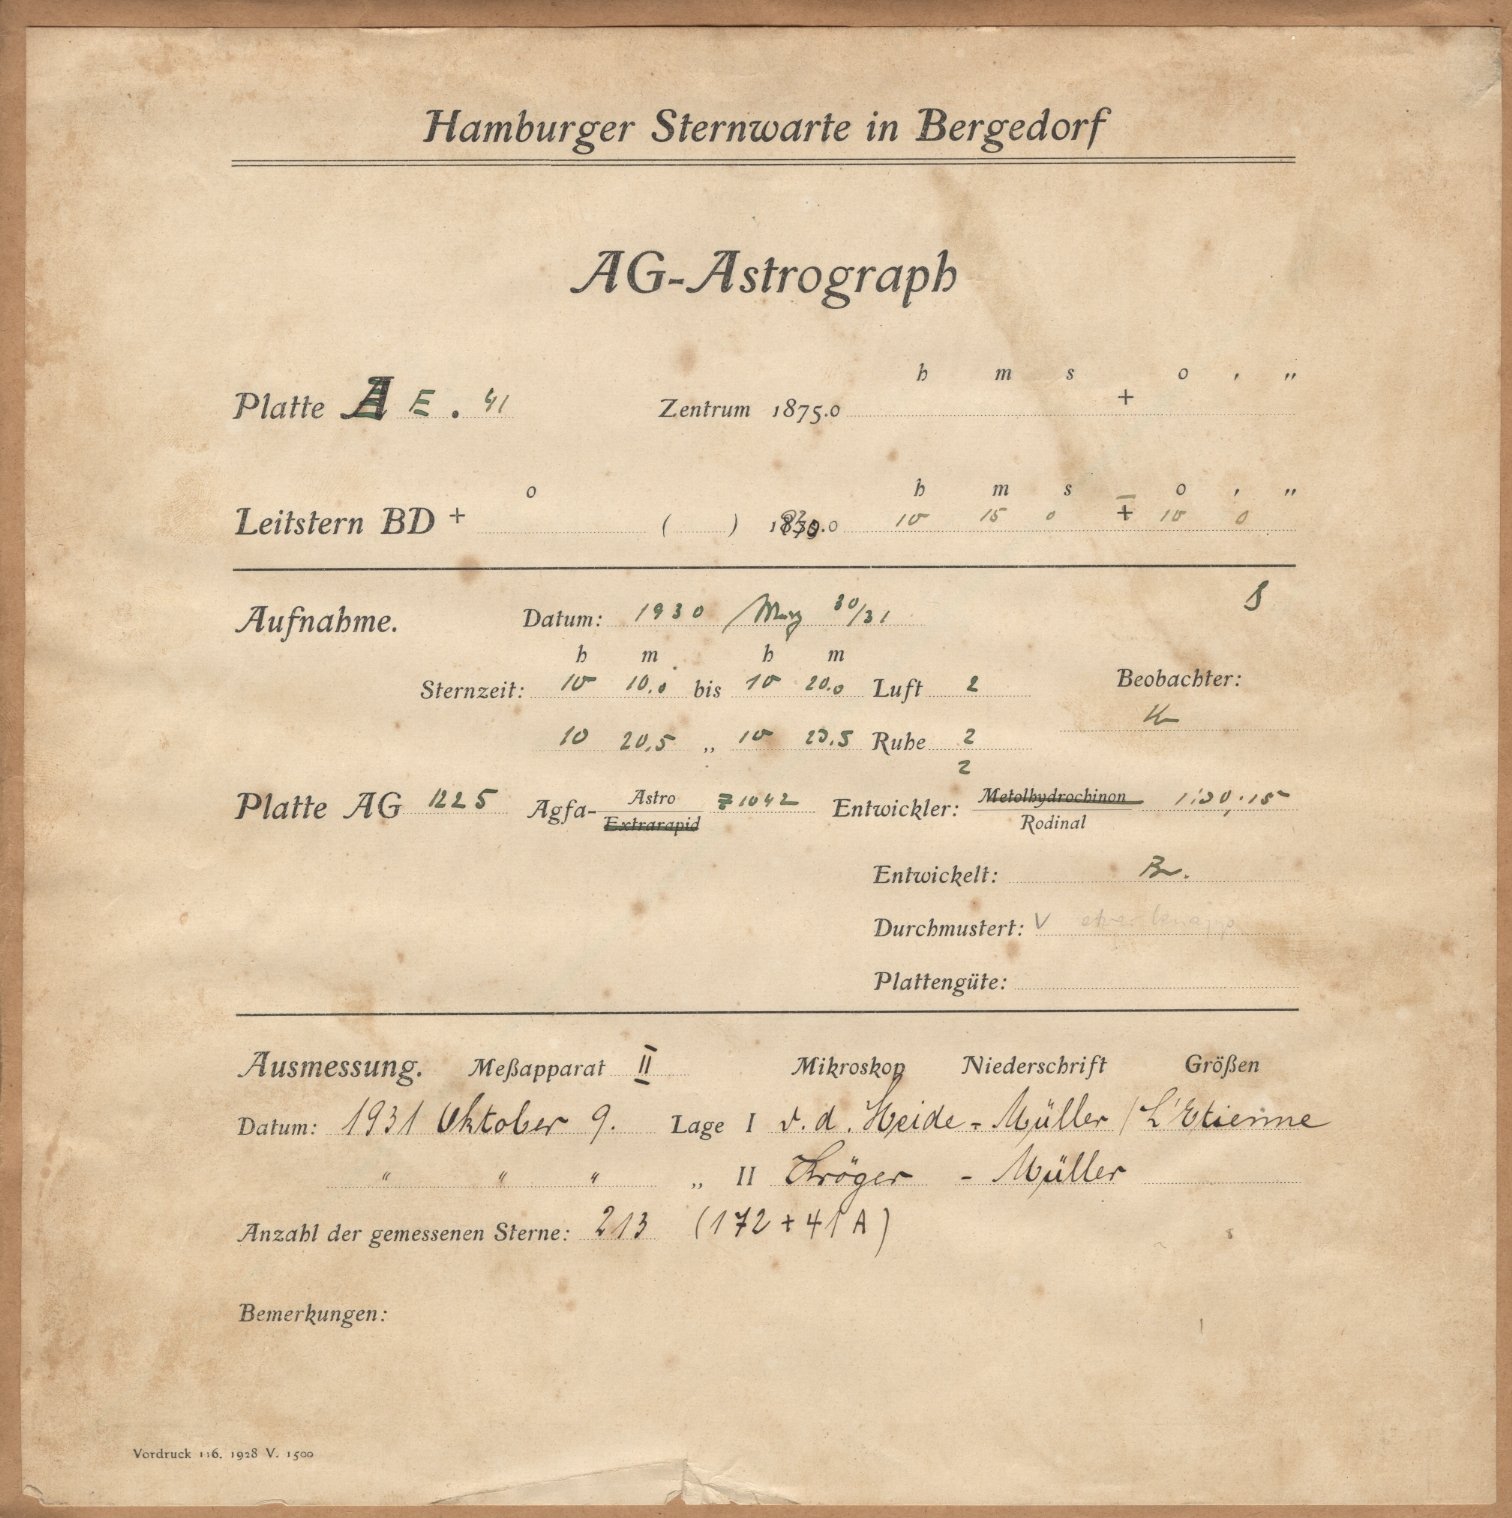 Hamburger Sternwarte in Bergedorf
AG-Astrograph
h m s o ʹ ʺ
Platte A E. 41 Zentrum 1875.0 +
o h m s o ʹ ʺ
Leitstern BD + ( ) .0 10 15 0 – + 10 0
Aufnahme. Datum: 1930 30/31
h m h m
Sternzeit: 10 10.0 bis 10 20.0 Luft 2 Beobachter:
10 20.5 „ 10 23.5 Ruhe 2
2
Platte AG 1225 Agfa- Astro Extrarapid 1042 Entwickler: Metolhydrochinon Rodinal
Entwickelt:
Durchmustert: V
Plattengüte:
Ausmessung. Meßapparat II Mikroskop Niederschrift Größen
Datum: 1931 Oktober 9. Lage I v. d. Heide - Müller / L'Etienne
" " " „ II Kröger - Müller
Anzahl der gemessenen Sterne: 213 (172 + 41 A)
Bemerkungen:
Vordruck 116. 1928 V. 1500